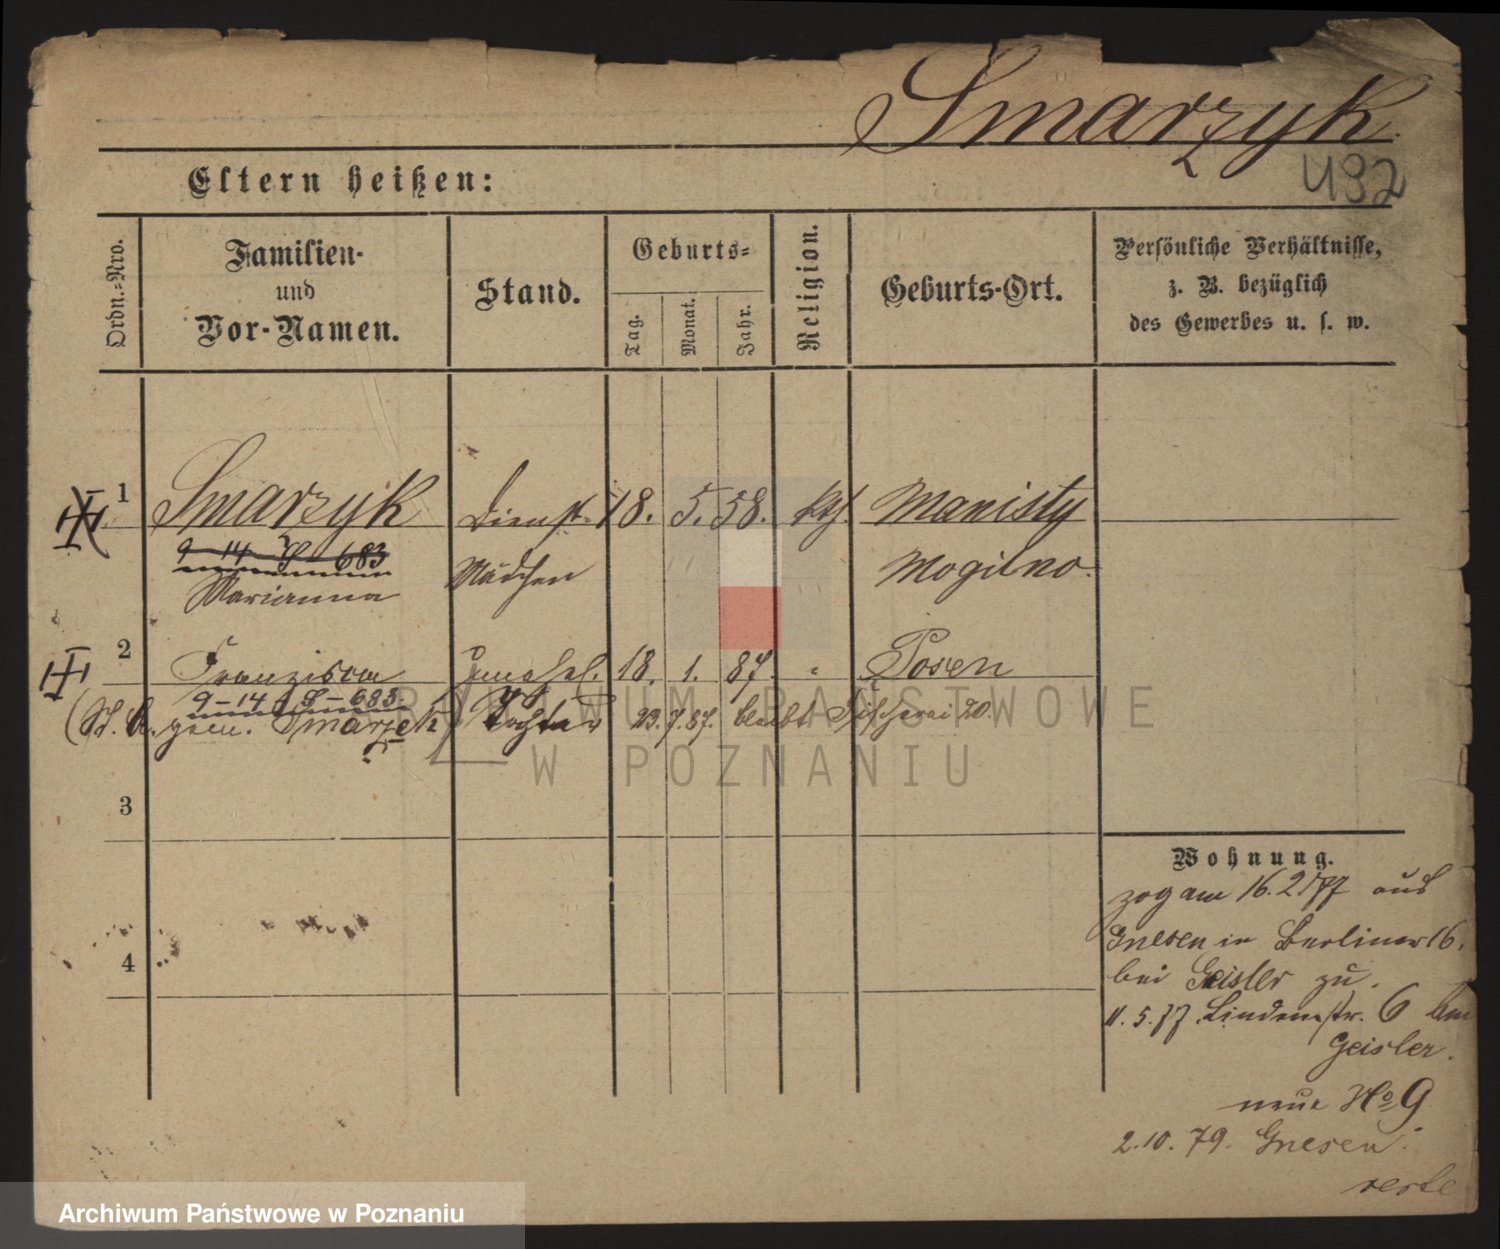 Smarzyk
492
Eltern heißen:
Ordn.-Nro.
Familien-
und
Vor-Namen.
Stand.
Geburts-
Tag.
Monat.
Jahr.
Religion.
Geburts-Ort.
Persönliche Verhältnisse,
z. B. bezüglich
des Gewerbes u. s. w.
1 Smarzyk Dienst- 18. 5. 58. kth. Manisty
9-14 S-683
Marianna Mädchen Mogilno.
2 Franziska 18. 1. 87. " Posen
9-14 S-683
gen. Smarzek Tochter 23.7.87. bleibt Fischerei 20.
3
4
Wohnung.
zog am 16.2.77 aus
Gnesen in Berliner 16.
bei Geisler zu.
11.5.77 Lindenstr. 6 bei
Geisler.
neue No 9
2.10.79. Gnesen.
ARCHIWUM PAŃSTWOWE
W POZNANIU
Archiwum Państwowe w Poznaniu